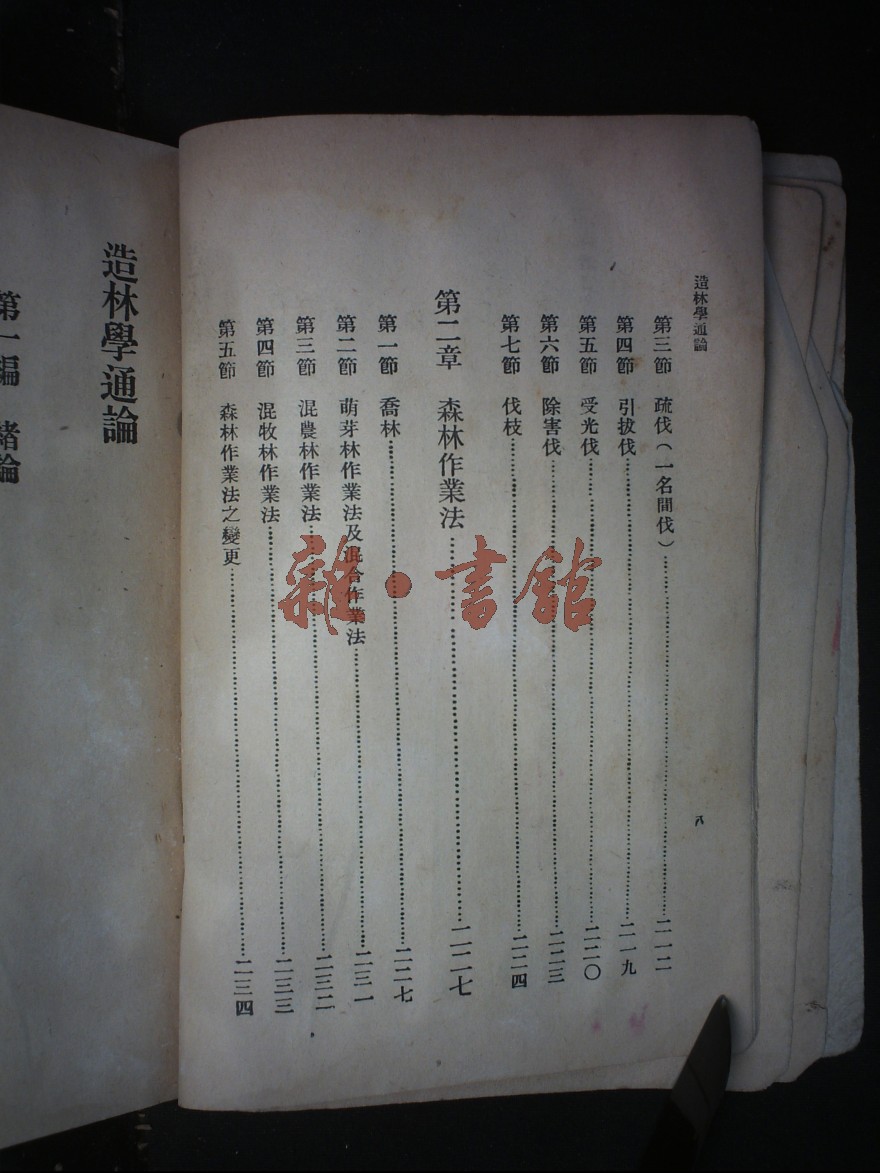 造林學通論
第三節 疏伐(一名間伐)……二一二
第四節 引拔伐……二一九
第五節 受光伐……二二〇
第六節 除害伐……二二三
第七節 伐枝……二二四
第二章 森林作業法……二二七
第一節 喬林……二二七
第二節 萌芽林作業法及混合作業法……二三一
第三節 混農林作業法……二三二
第四節 混牧林作業法……二三三
第五節 森林作業法之變更……二三四
八
造林學通論
第一編 緒論
雜·書館